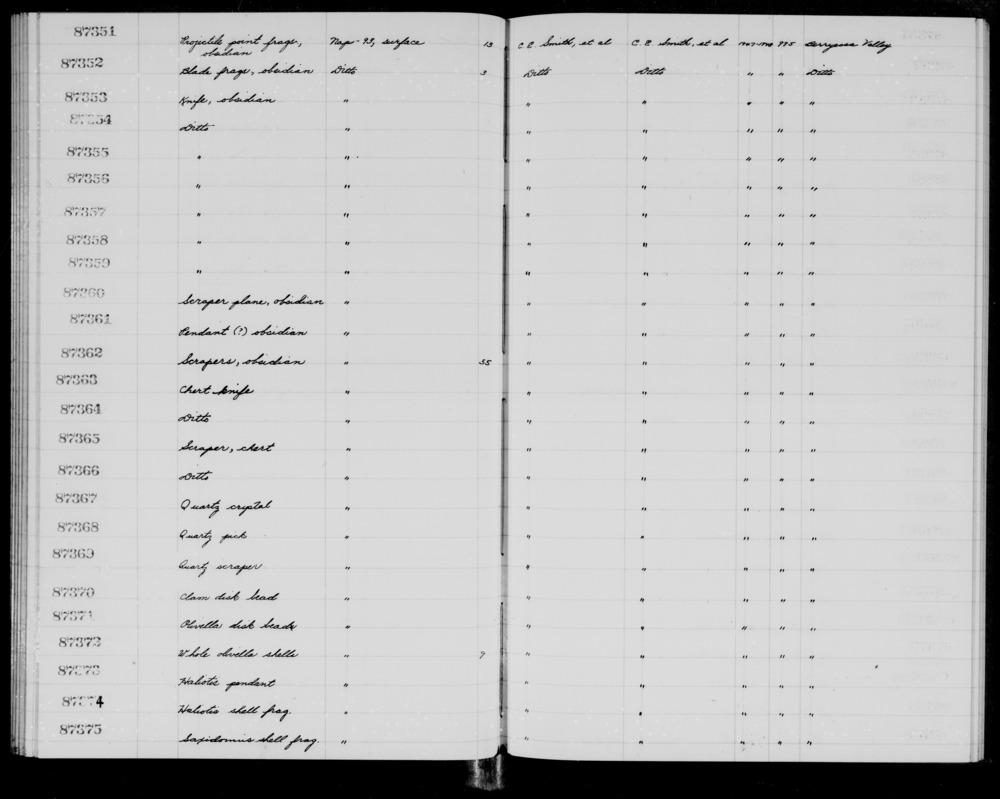 87351 Projectile point frags, obsidian Nap-93, surface 13 C.E. Smith, et al C.E. Smith, et al 995 Berryessa Valley
87352 Blade frags, obsidian Ditto 3 Ditto Ditto " " Ditto
87353 Knife, obsidian " " " " " "
87354 Ditto " " " " " "
87355 " " " " " " "
87356 " " " " " " "
87357 " " " " " " "
87358 " " " " " " "
87359 " " " " " " "
87360 Scraper plane, obsidian " " " " " "
87361 Pendant (?) obsidian " " " " " "
87362 Scrapers, obsidian " 55 " " " " "
87363 Chert knife " " " " " "
87364 Ditto " " " " " "
87365 Scraper, chert " " " " " "
87366 Ditto " " " " " "
87367 Quartz crystal " " " " " "
87368 Quartz pick " " " " " "
87369 Quartz scraper " " " " " "
87370 Clam disk bead " " " " " "
87371 Olivella disk beads " " " " " "
87372 Whole olivella shells " 9 " " " " "
87373 Haliotis pendant " " " " " "
87374 Haliotis shell frag. " " " " " "
87375 Saxidomus shell frag. " " " " " "